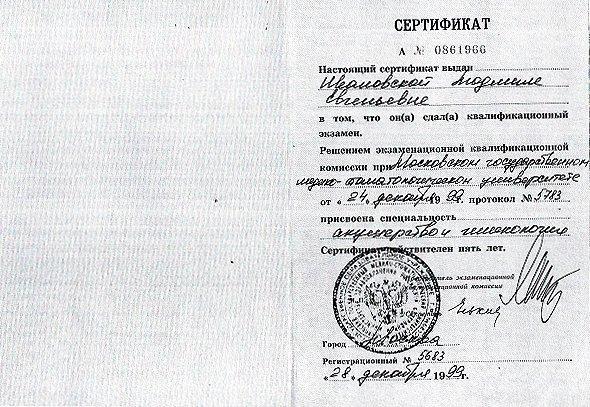 СЕРТИФИКАТ
А № 0861966
Настоящий сертификат выдан
Ивановской Людмиле
Евгеньевне
в том, что он(а) сдал(а) квалификационный
экзамен.
Решением экзаменационной квалификационной
комиссии при Московском государственном
медико-стоматологическом университете
от «24» декабря 1999. протокол № 5783
присвоена специальность
акушерство и гинекология
Сертификат действителен пять лет.
экзаменационной
комиссии
Город Москва
Регистрационный № 5683
«28» декабря 1999г.